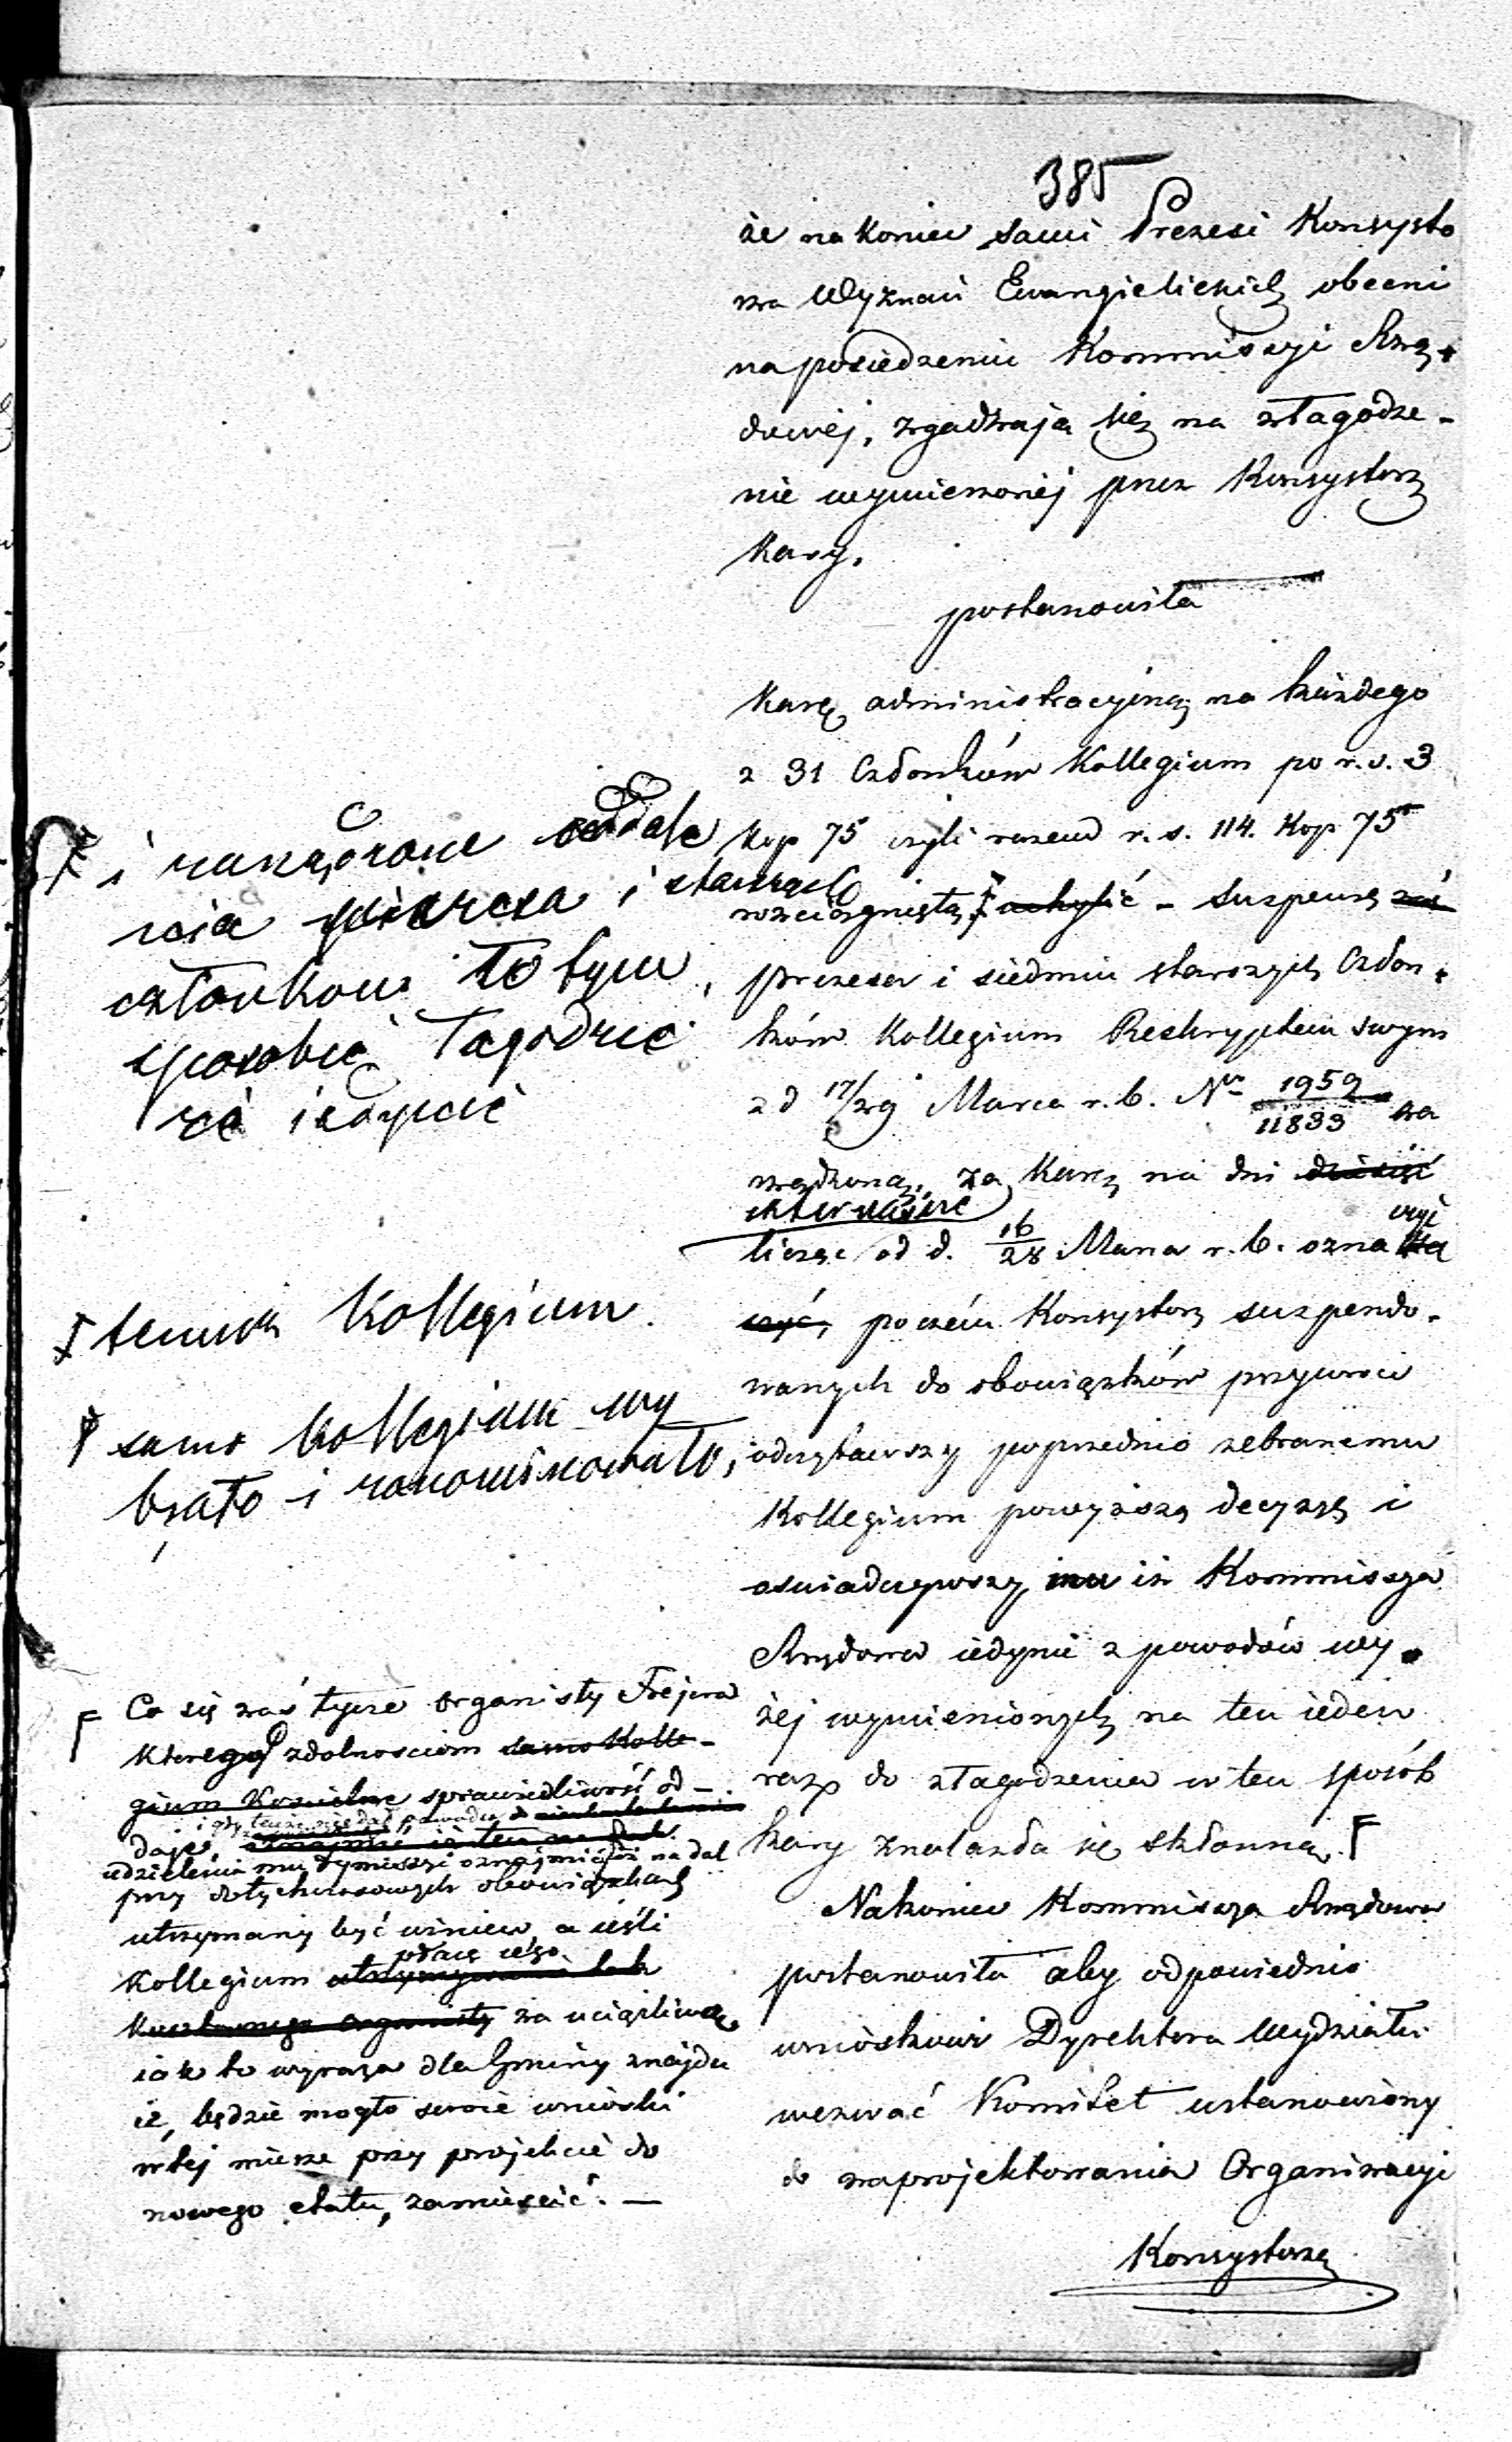 385
że nakoniec sami Prezesi Konsysto
rza Wyznań Ewangielickich obecni
na posiedzeniu Kommissyi Rzą-
dowéj, zgadzają się na złagodze-
nie wymierzonéj przez Konsystorz
kary.
postanowiła
Karę administracyjną na każdego
z 31 Członków Kollegium po r.s. 3
kop 75 czyli razem r.s. 114. kop 75
rozciągniętą, uchylić - suspensę zaś
prezesa i siedmiu starszych Człon-
ków Kollegium Reskryptem swym
z d 17/29 Marca r.b. Nr 1959/11833 za
rządzoną, za karę na dni dziesięć
czternaście
licząc od d. 16/28 Marca r.b. ozna
czyć, poczém Konsystorz suspendo-
wanych do obowiązków przywróci
odczytawszy poprzednio zebranemu
Kollegium powyższą decyzyę i
oswiadczywszy mu iż Kommissya
Rządowa iedynie z powodów wy-
żéj wymienionych na ten ieden
raz do złagodzenia w ten sposób
kary znalazła się skłonną. F
Nakoniec Kommissya Rządowa
postanowiła aby odpowiednio
wnioskowi Dyrektora Wydziału
wezwać Komitet ustanowiony
do zaprojektowania Organizacyi
Konsystorza
i zarządzone oddale
nia prezesa i starszych
członków to tym
sposobie łagodzić
temuż Kollegium.
samo Kollegium wy
brało i zanominowało,
F Co się zaś tycze organisty Frejera
którego zdolnościom samo Kolle-
gium Kościelne sprawiedliwość od-
daje,
udzielenia mu dymissyi oznajmić iż na dal
przy dotychczasowych obowiązkach
utrzymany być winien a ieśli
Kollegium płacę iego
za uciążliwą,
iak to wyraża dla Gminy znajdu
ie, będzie mogło swoie wnioski
w téj mierze przy projekcie do
nowego etatu, zamieścić. —